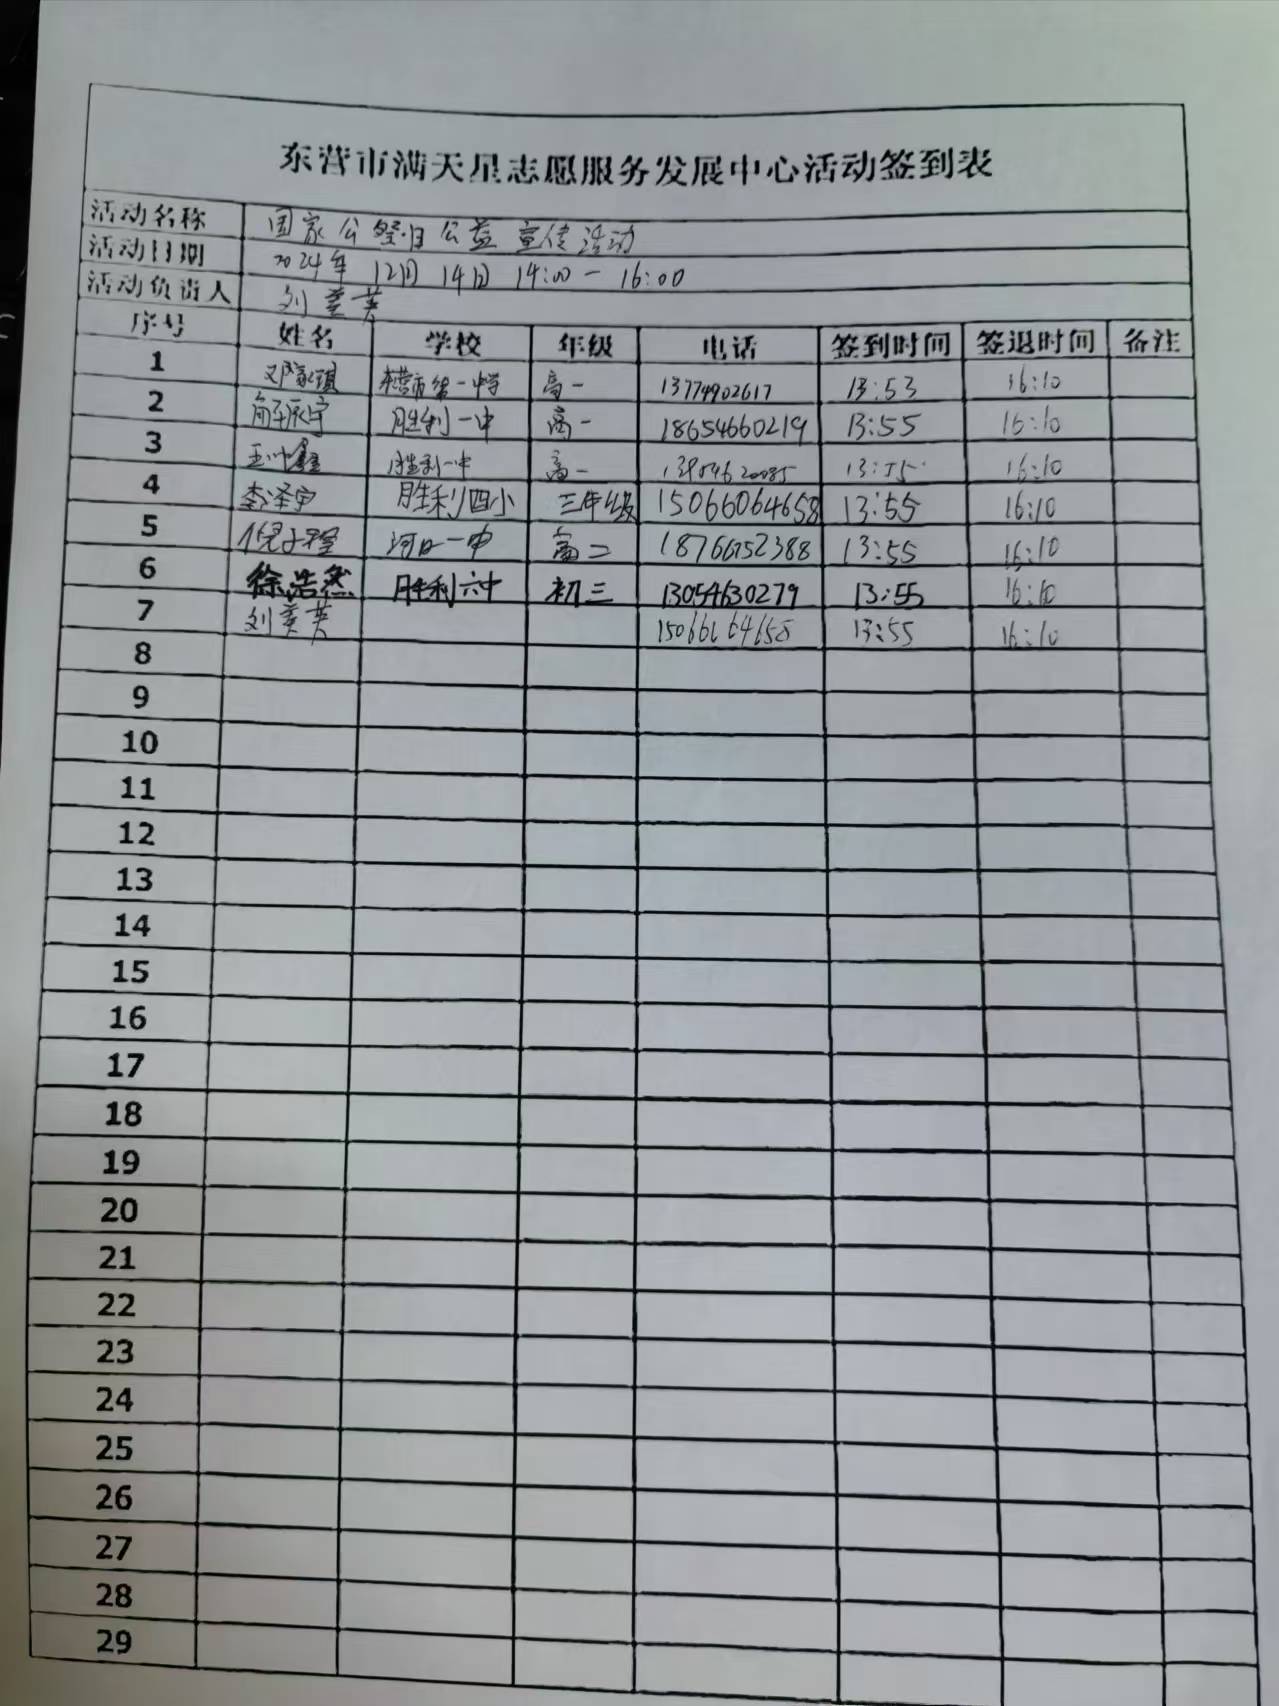 东营市满天星志愿服务发展中心活动签到表
活动名称 国家公祭日公益宣传活动
活动日期 2024年12月14日 14:00-16:00
活动负责人 刘美英
序号 姓名 学校 年级 电话 签到时间 签退时间 备注
1 邓家琪 东营市第一中学 高一 13774902617 13:53 16:10
2 胜利一中 高一 18654660219 13:55 16:10
3 胜利一中 高一 13:55 16:10
4 李泽宇 胜利四小 三年级 15066064658 13:55 16:10
5 倪子程 河口一中 高二 13:55 16:10
6 徐浩然 胜利六中 初三 13054630279 13:55 16:10
7 刘美英 13:55 16:10
8
9
10
11
12
13
14
15
16
17
18
19
20
21
22
23
24
25
26
27
28
29